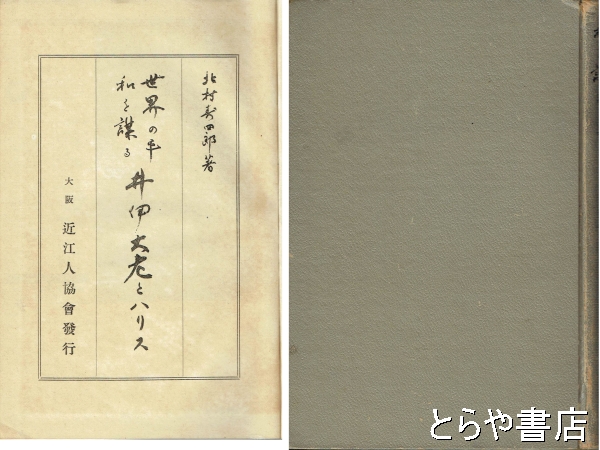 北村寿四郎著
世界の平
和を謀る
井伊大老とハリス
大阪 近江人協會發行
とらや書店